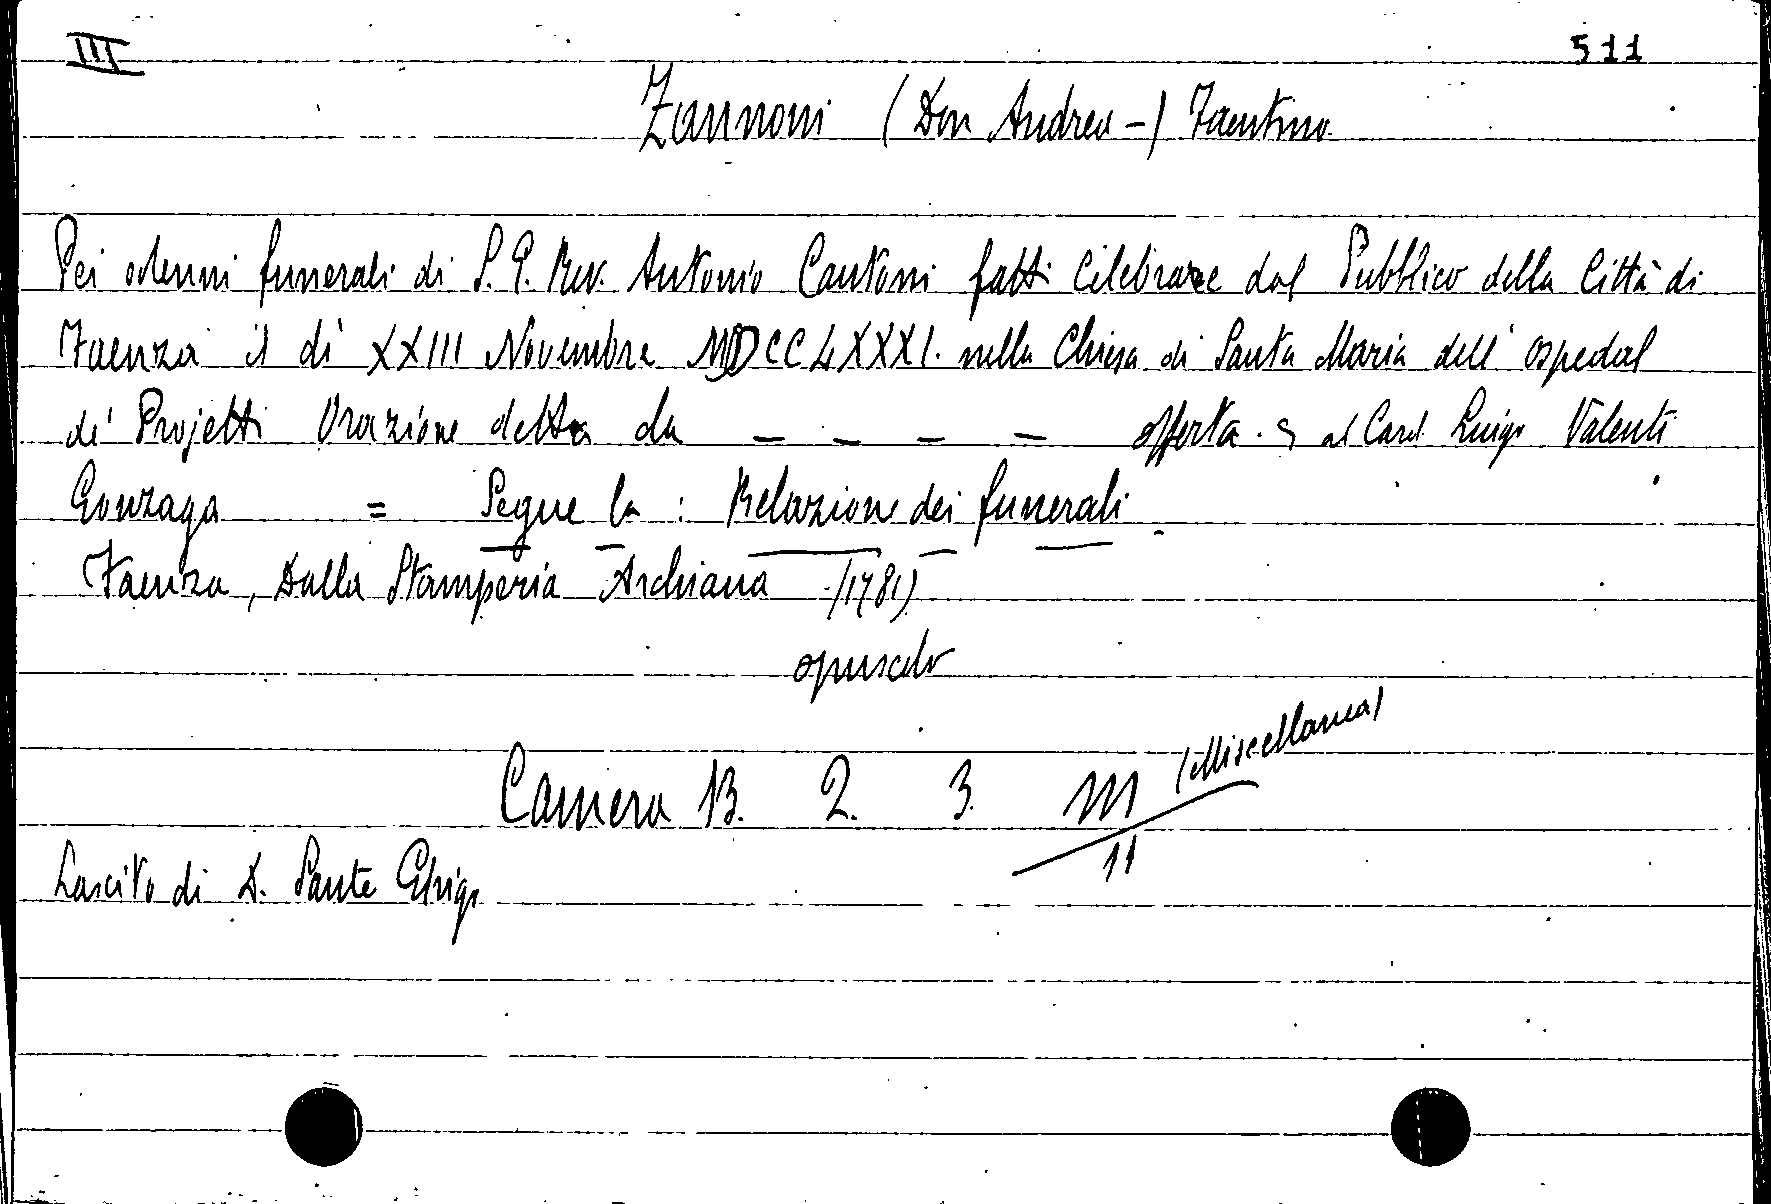 III 511
Zannoni (Don Andrea -) Faentino
Pei solenni funerali di S. E. Rev. Antonio Cantoni fatti celebrare dal Pubblico della Città di
Faenza il dì XXIII Novembre MDCCLXXXI. nella Chiesa di Santa Maria dell' Ospedal
de' Projetti Orazione detta da – – – – offerta. al Card. Luigi Valenti
Gonzaga = Segue la : Relazione dei funerali.
Faenza, Dalla Stamperia Archiana (1781)
opuscolo
(Miscellanea)
Camera 13. 2. 3. m
11
Lascito di D. Sante Ghigi